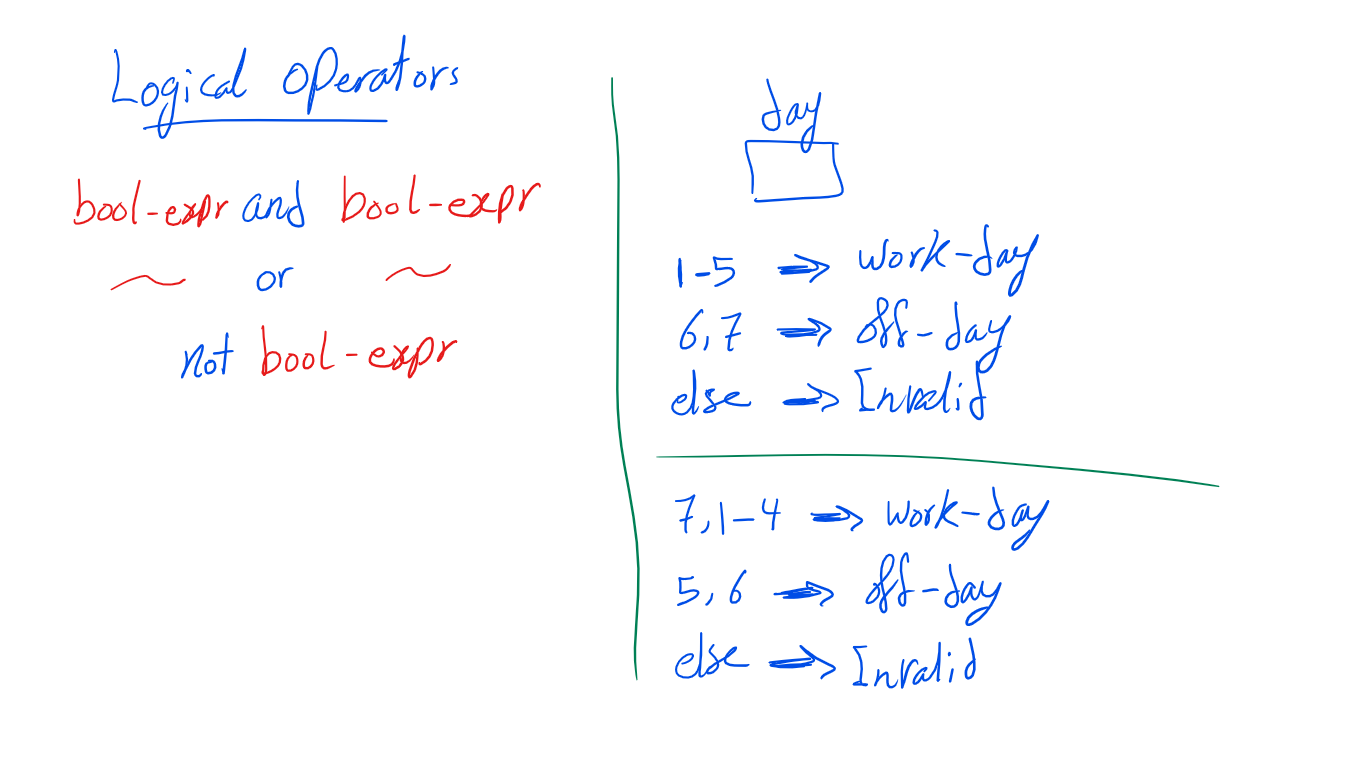 Logical operators
bool-expr and bool-expr
or
not bool-expr
day
1-5 => work-day
6,7 => off-day
else => Invalid
7,1-4 => work-day
5,6 => off-day
else => Invalid